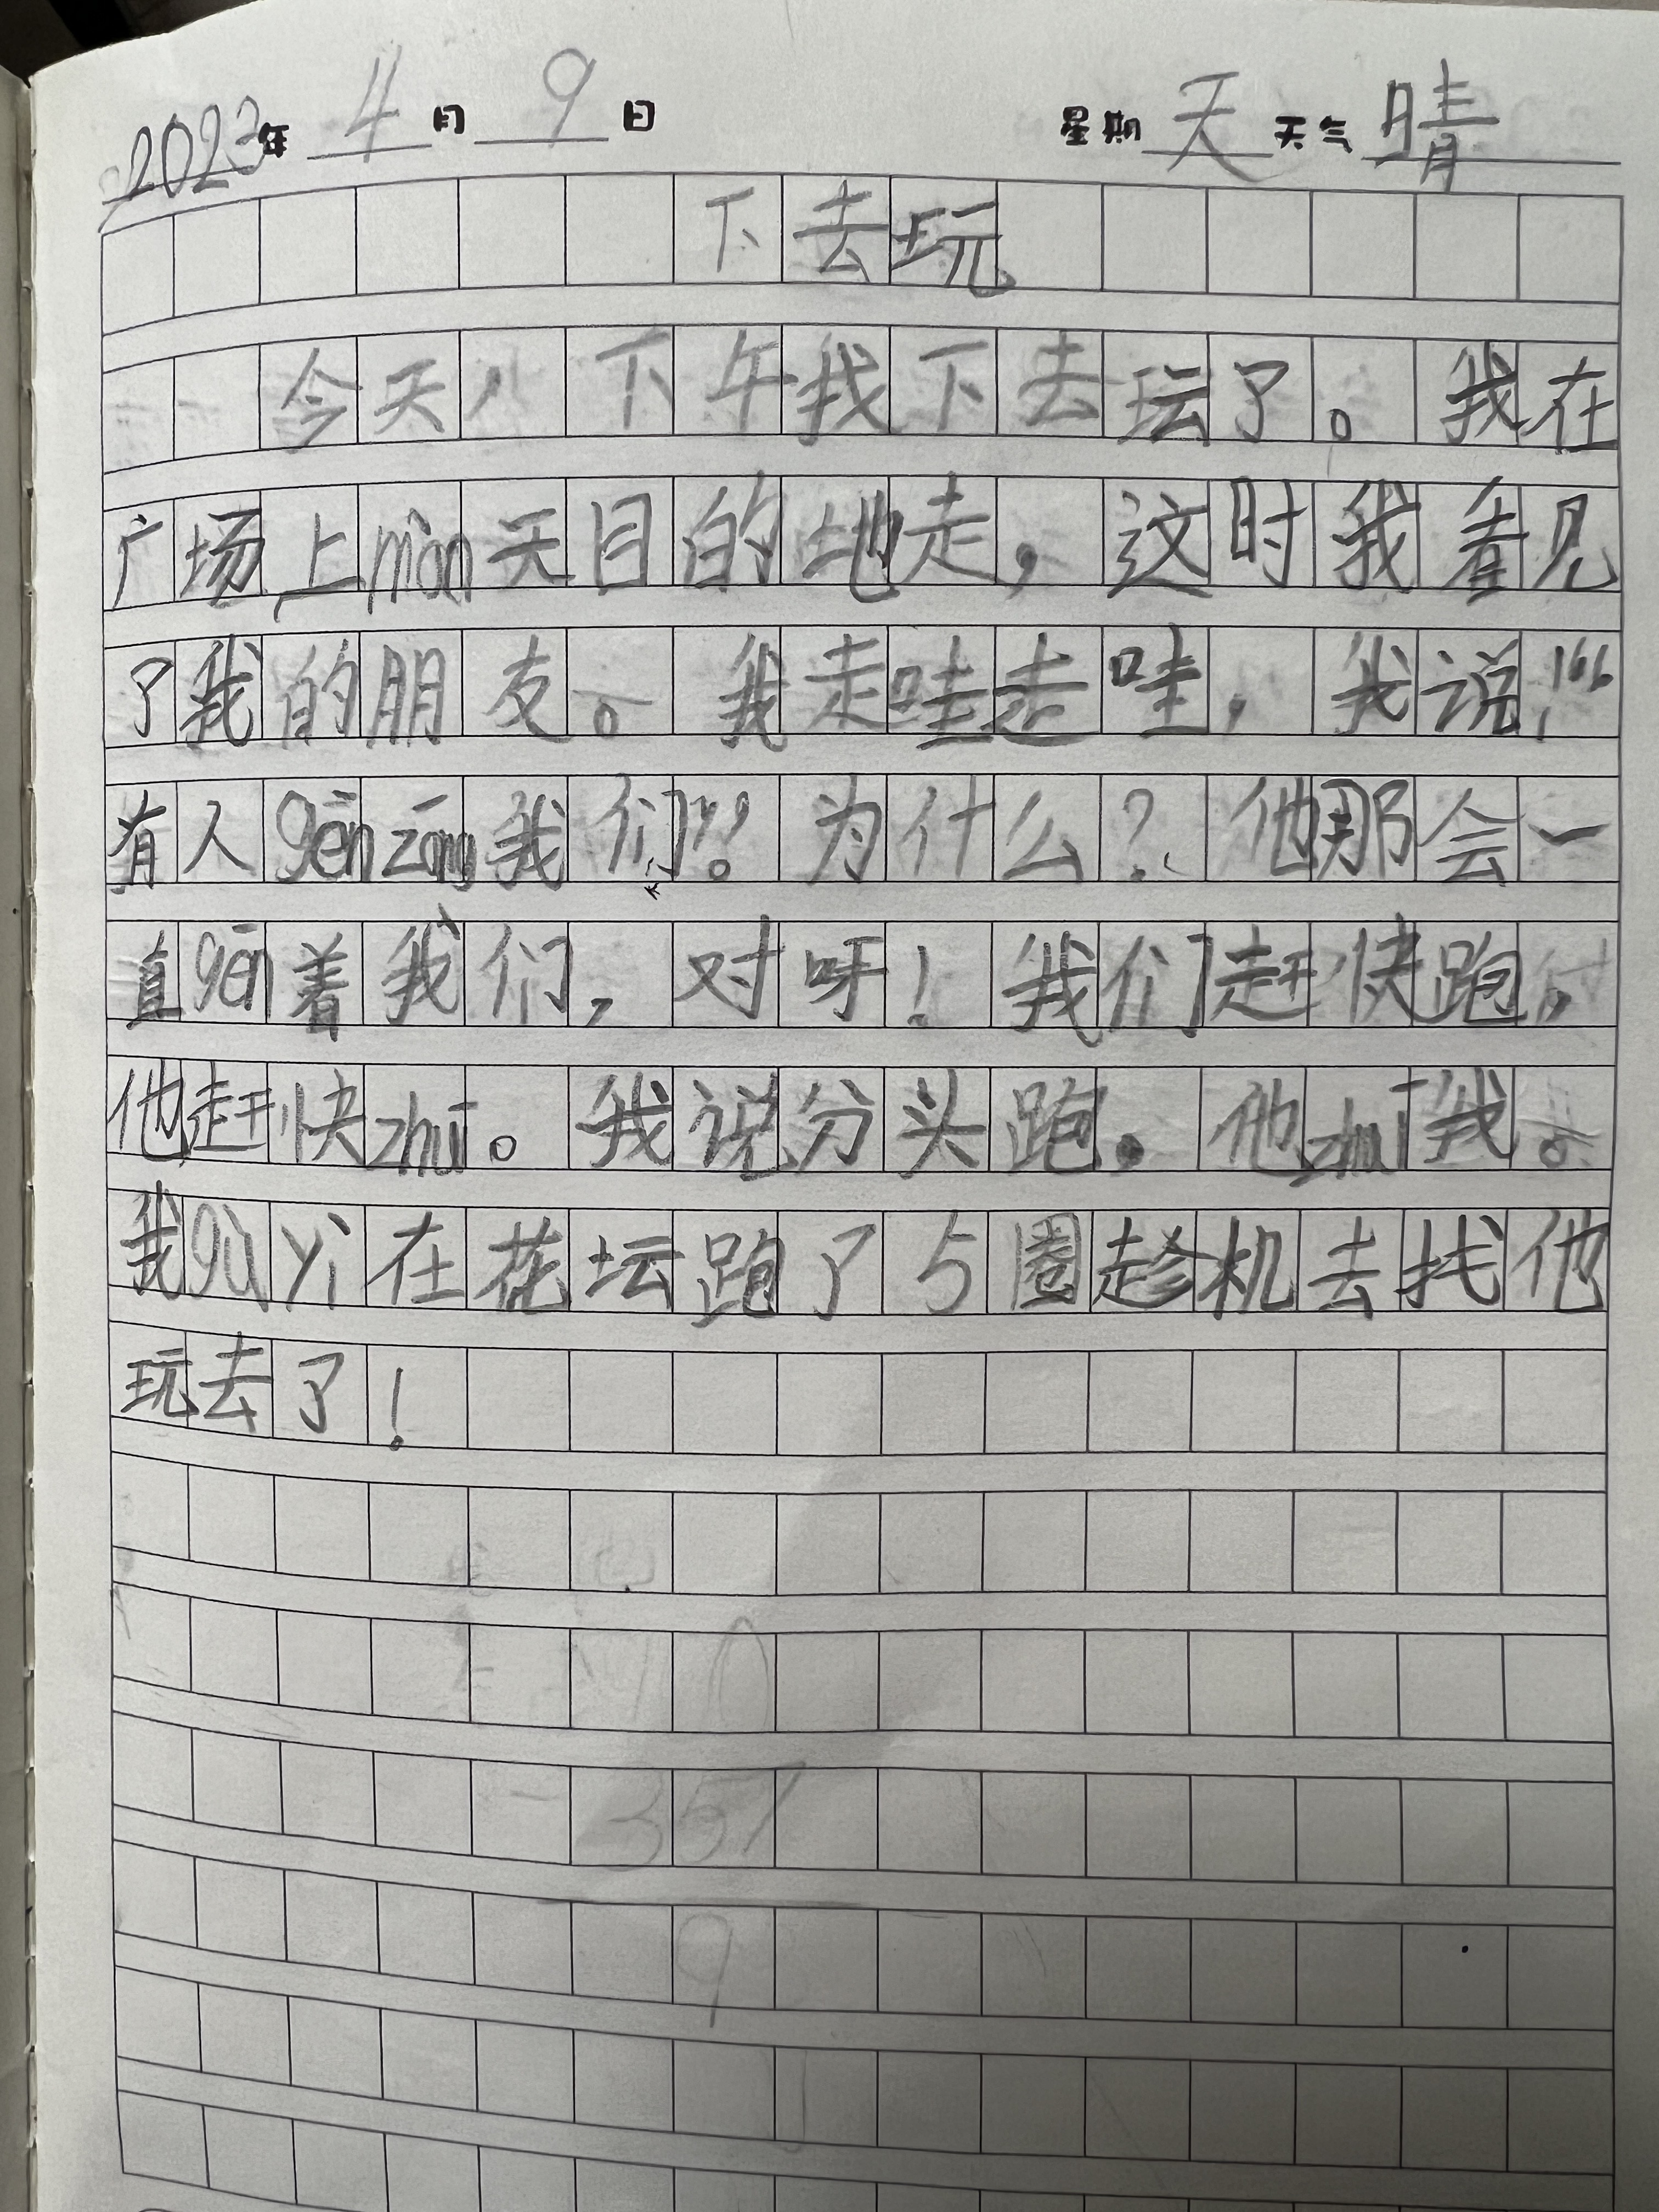 2023年 4月 9日 星期 天 天气 晴
下去玩
今天，下午我下去玩了。我在
广场上màn天目的地走，这时我看见
了我的朋友。我走哇走哇，我说！“
有人gēnzōng我们”！为什么？他那会一
直gēn着我们，对呀！我们赶快跑，
他赶快zhuī。我说分头跑。他zhuī我。
我gùyì在花坛跑了5圈趁机去找他
玩去了！
357
9